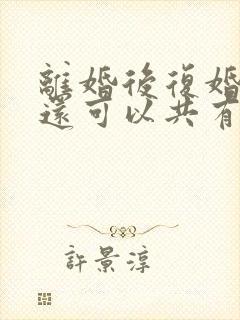 離婚後復婚
還可以共有
許景淳